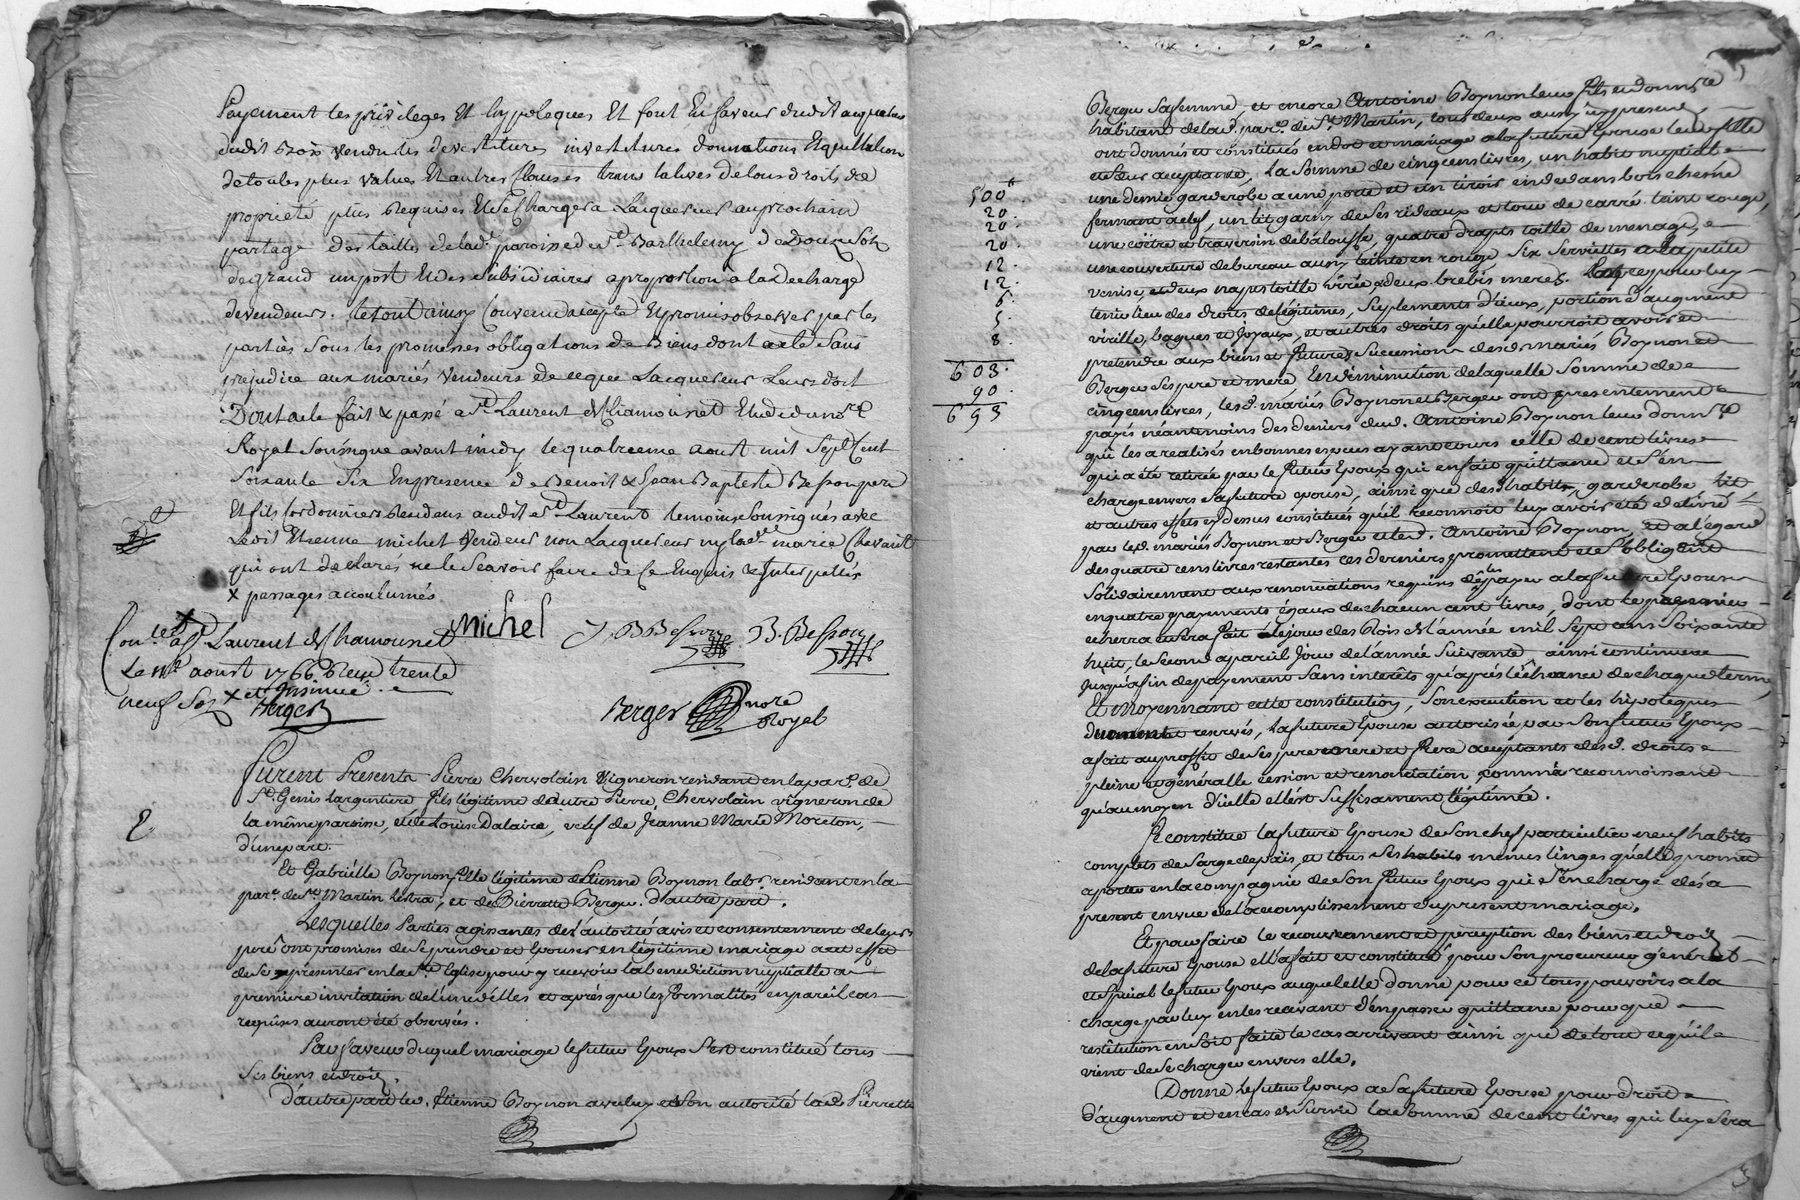 Payement les privileges Et hypoteques Et font En faveur dudit acquereur
dudit Bois vendu les devestitures investitures donnations Et quittation
de toutes plus values Et autres Clauses translatives de tous droits de
proprieté plus Requises Et de Chargera Lacquereur au prochain
partage des tailles de lad. paroisse de St Barthelemy de
de grand import Et des subsidiaires a proportion a la decharge
de vendeurs. le tout ainsy Convenu accepté Et promis observer par les
parties sous les promesses obligations de Biens dont acte Sans
prejudice aux mariés vendeurs de ce que Lacquereur Leurs doit
Dont acte fait & passé a St Laurent de Chamousset Etude du nore
Royal Soussigné avant midy le quatrieme aout mil Sept Cent
Soixante Six En presence de Benoit & Jean Baptiste Besson pere
Et fils Cordonniers Residens audit St Laurent temoins Soussignés avec
Ledit Etienne michel vendeur non Lacquereur ny lad. marie Chevant
qui ont declarés ne le Scavoir faire de Ce Enquis & Interpellés
x passages accoutumés
Michel J. B Besson B. Besson
Conlé a St Laurent de Chamousset
Le aoust 1766 Reçu trente
neuf Sols x et Insinué
Berger
Berger nore Royal
2
Furent Presents Pierre Chervolain Vigneron residant en la par. de
St Genis Largentiere fils légitime d'autre Pierre Chervolain vigneron de
la même paroisse, et de Louise Dalaire, vefs de Jeanne Marie Moreton,
d'une part.
Et Gabriélle Boynon fille légitime d'Etienne Boynon labr residant en la
par. de St Martin Lestra, et de Pierrette Berger. d'autre part.
Lesquelles Parties agissantes de l'autorité avis et consentement de leurs
pere ont promises de se prendre et Epouser en légitime mariage a cet effet
de se présenter en la Ste Eglise pour y recevoir la bénédiction nuptialle a
premiere invitation de l'une d'elles et aprés que les formalités en pareil cas
requises auront été observées.
En faveur duquel mariage le futur Epoux s'est constitué tous
ses biens et droits
D'autre part led. Etienne Boynon avec luy et de son autorité lad. Pierrette
Berger sa femme, et encore Antoine Boynon leur fils et donnre
habitant de lad. par. de St Martin, tous deux aussy presents
ont donnés et constitués en dot et mariage a la future Epouse leur fille
et sœur acceptante, la Somme de cinq cens livres, un habit nuptiale
une demie garderobe a une porte et un tiroir en dedans bois chesne
fermant a clef, un lit garny de ses rideaux et tour de carré teint rouge,
une coëtre et traversin de balouffe, quatre draps toille de menage,
une couverture de bureau aussy teinte en rouge Six Serviettes a la petite
venise, et deux nappes toille virée, & deux brebis meres. Lap et pour luy
tenir lieu des droits de légitimes, Suplements d'iceux, portion d'augment
virille, bagues et Joyaux, et autres droits qu'elle pourroit avoir et
pretendre aux biens et futures Sucessions desd. mariés Boynon et
Berger ses pere et mere En diminution de laquelle Somme de
cinq cens livres, lesd. mariés Boynon et Berger ont presentement
payés néantmoins des deniers dud. Antoine Boynon leur donnre
qui les a realisés en bonnes especes ayant cours celle de cent livres
qui a été retirée par le futur Epoux qui en fait quittance et s'en
charge envers sa future epouse, ainsi que desd. habits, garderobe lit
et autres effets cy dessus constitués qu'il reconnoit luy avoir été délivré
par lesd. mariés Boynon et Berger et led. Antoine Boynon, et a l'égard
des quatre cens livres restantes ces derniers promettent et s'obligent
Solidairement aux renonciations requises de les payer a la future Epouse
en quatre payements égaux de chacun cent livres, dont le premier
echerra et sera fait le jour des Rois de l'année mil Sept cens Soixante
huit, le second a pareil jour de l'année suivante ainsi continuer
Jusqu'a fin de payement Sans interêts qu'aprés l'échéance de chaque terme,
Et moyennant cette constitution, Son execution et les hipoteques
duement reservés, la future Epouse autorisée par Son futur Epoux
a fait au proffit de ses pere mere et frere acceptants desd. droits
pleine et généralle cession et renonciation comme reconnoissant
qu'au moyen d'icelle elle est Suffisament légitimée.
Se constitue la future Epouse de Son chef particulier neuf habits
complets de Sarge de païs, et tous ses habits menus linges qu'elle promet
aporter en la compagnie de Son futur Epoux qui s'en charge dés a
present en vue de l'accomplissement du present mariage.
Et pour faire le recouvrement et perception des biens et droits
de la future Epouse elle a fait et constitué pour Son procureur général
et special le futur Epoux auquel elle donne pour ce tous pouvoirs a la
charge par luy en les recevant d'en passer quittance pour que
restitution en soit faite le cas arrivant ainsi que de tout ce qu'il
vient de se charger envers elle.
Donne le futur Epoux a Sa future Epouse pour droit
d'augment et en cas de Survie la Somme de cent livres qui luy Sera
500#
20.
20.
20.
12.
12.
6.
5.
8.
603.
90.
693
3